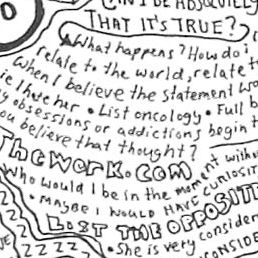 CAN I BE ABSOLUTELY
THAT IT'S TRUE?
What happens? How do I
relate to the world, relate t
When I believe the statement wo
ie I hate her • List oncology • Full b
y obsessions or addictions begin t
ou believe that thought?
TheWork.com
Who would I be in the moment with
• MAYBE I WOULD HAVE CURIOSIT
LIST THE OPPOSITE
• She is very consider
CONSIDE
Z Z Z Z Z